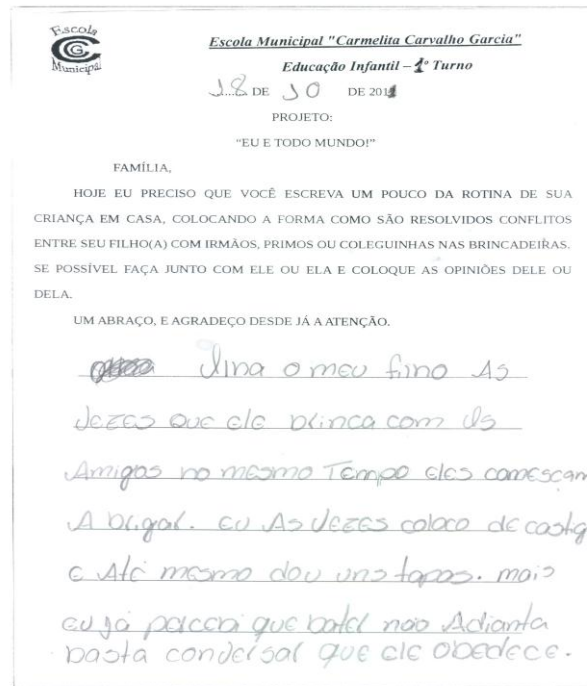 Escola
CCG
Municipal
Escola Municipal "Carmelita Carvalho Garcia"
Educação Infantil – 1º Turno
18 DE 10 DE 2011
PROJETO:
"EU E TODO MUNDO!"
FAMÍLIA,
HOJE EU PRECISO QUE VOCÊ ESCREVA UM POUCO DA ROTINA DE SUA
CRIANÇA EM CASA, COLOCANDO A FORMA COMO SÃO RESOLVIDOS CONFLITOS
ENTRE SEU FILHO(A) COM IRMÃOS, PRIMOS OU COLEGUINHAS NAS BRINCADEIRAS.
SE POSSÍVEL FAÇA JUNTO COM ELE OU ELA E COLOQUE AS OPINIÕES DELE OU
DELA.
UM ABRAÇO, E AGRADEÇO DESDE JÁ A ATENÇÃO.
o meu fino As
vezes que ele brinca com Us
Amigos no mesmo Tempo eles comescam
A brigar. eu As vezes coloco de castig
e Até mesmo dou uns tapas. mais
eu já percebi que bater nao Adianta
basta conversar que ele obedece.